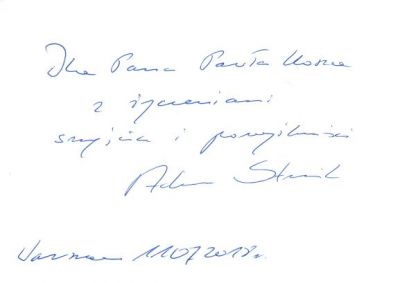 Dla Pana Pawła
z życzeniami
szczęścia i pomyślności
Adam
Warszawa 11 07 2018 r.